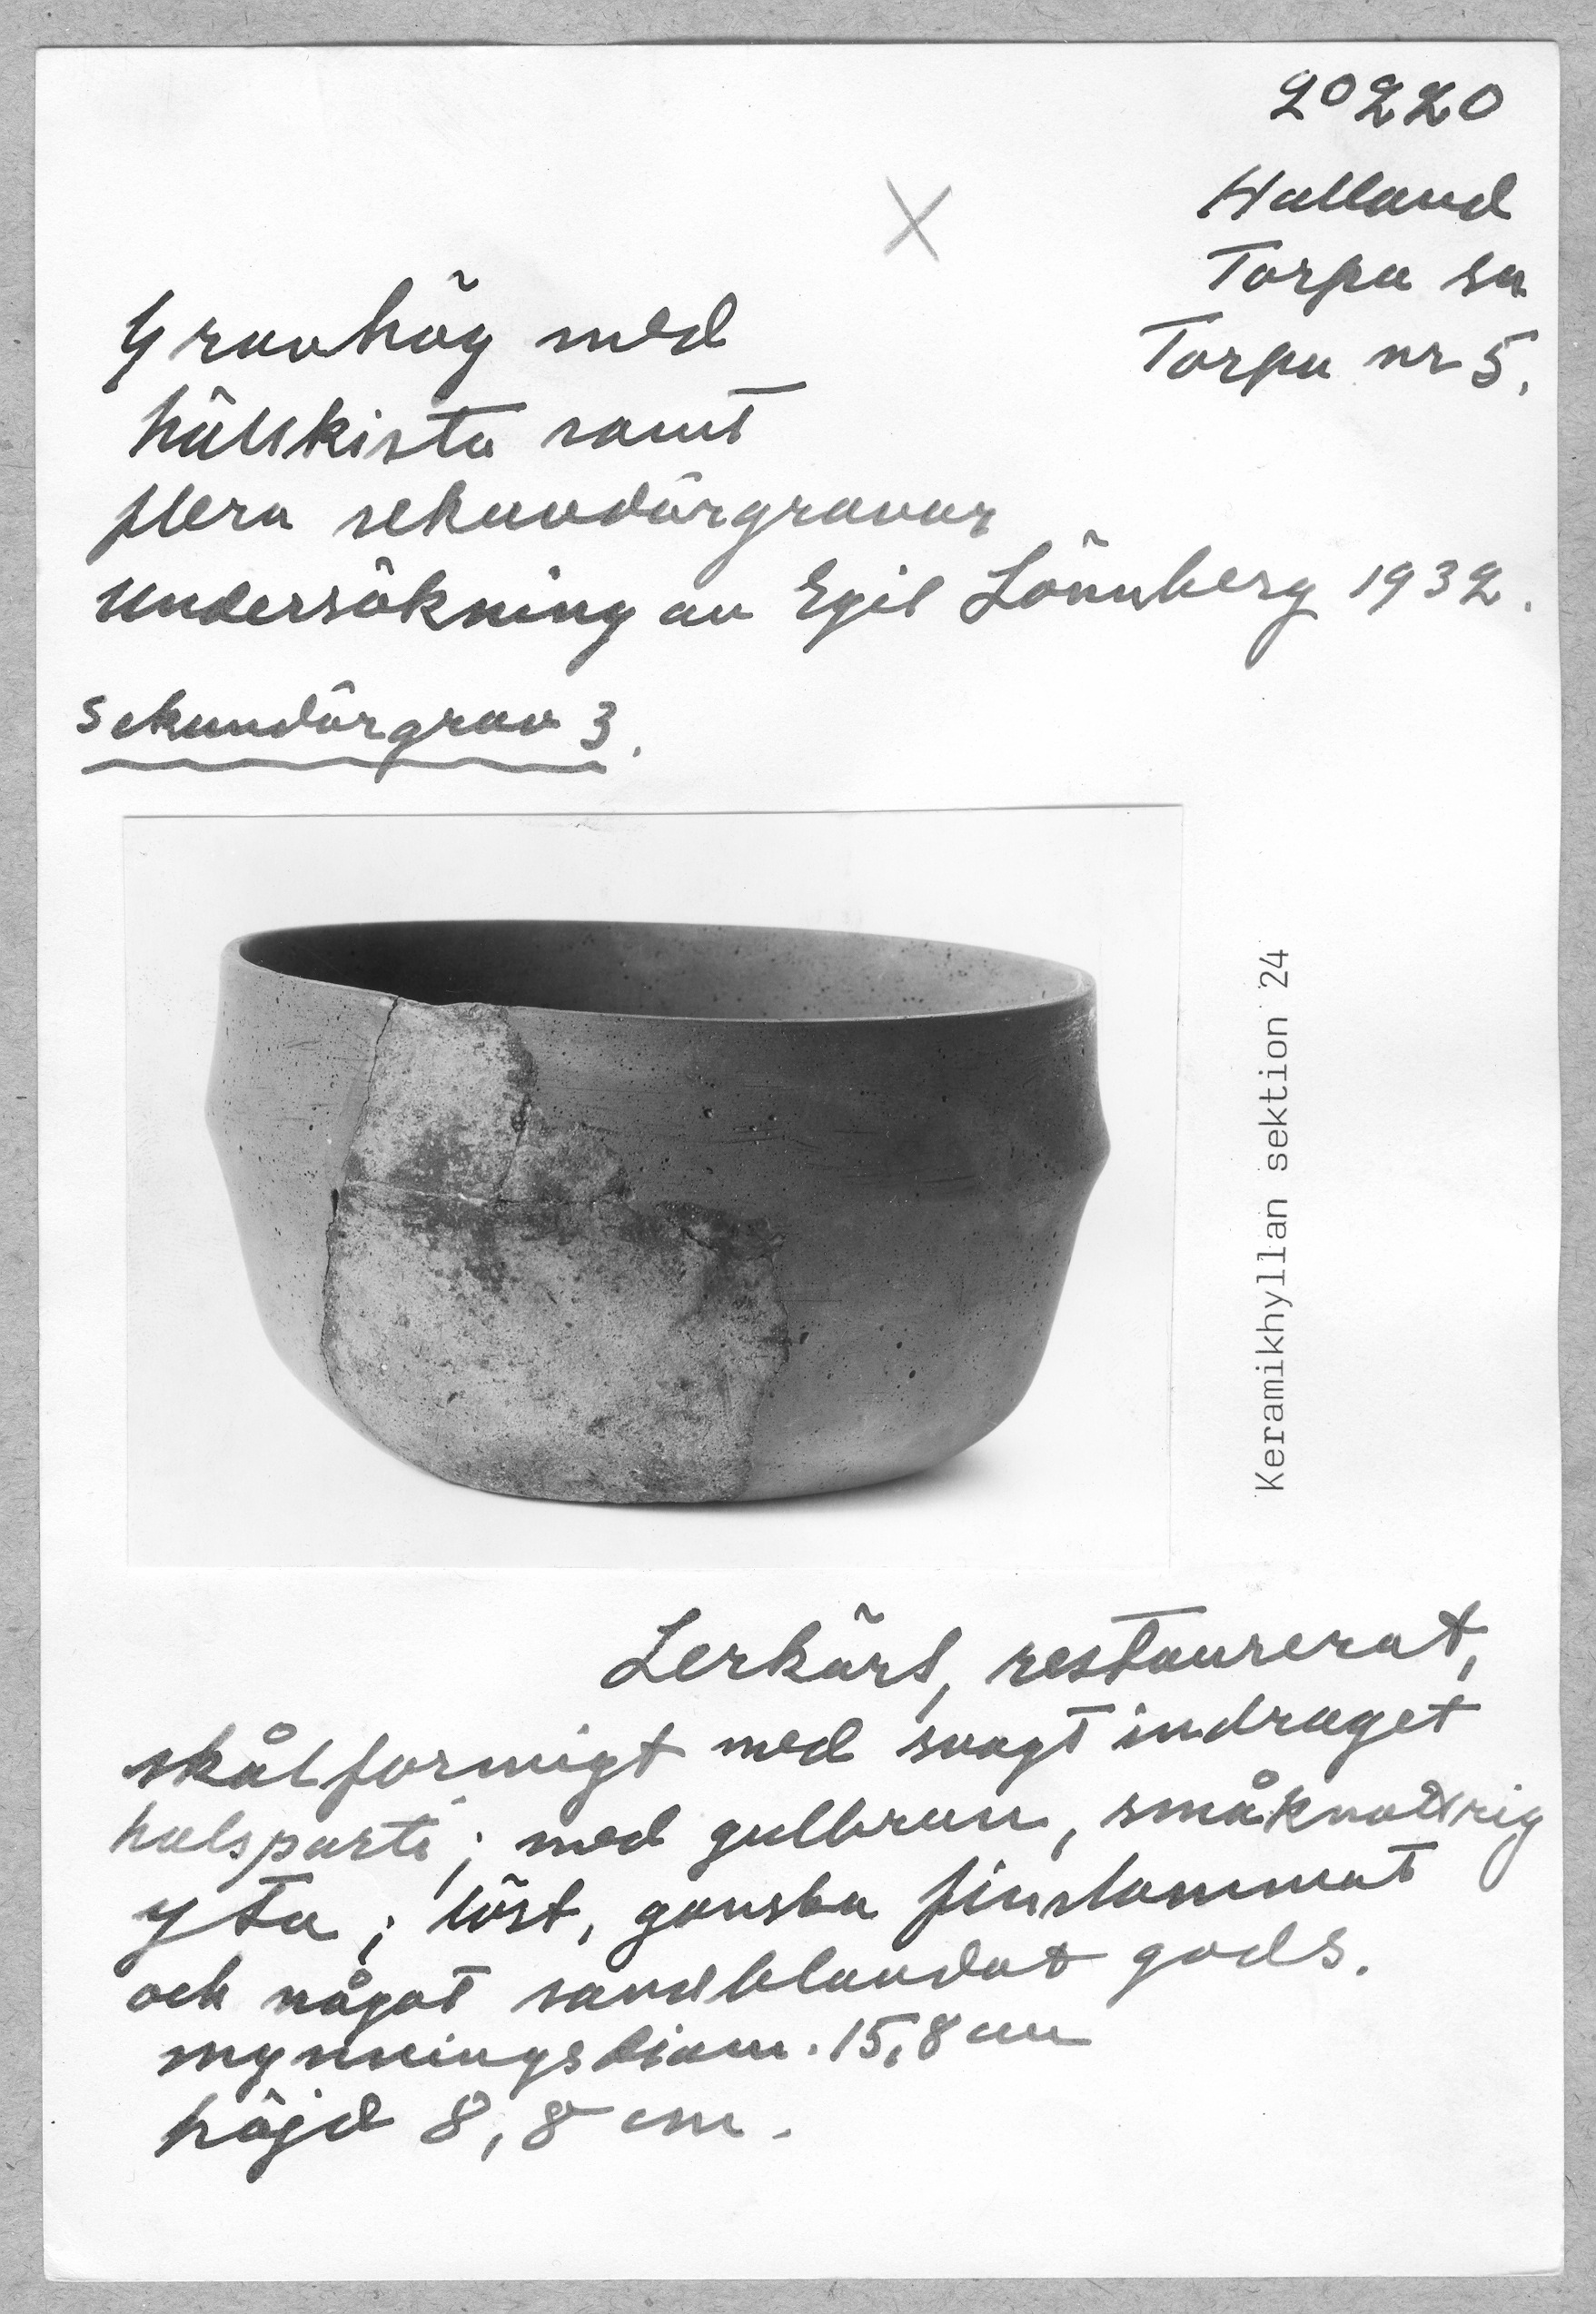 20220
Halland
Torpa sn
Torpa nr 5.
Gravhög med
hällkista samt
flera sekundärgravar
undersökning av Egil Lönnberg 1932.
Sekundärgrav 3.
Keramikhyllan sektion 24
Lerkärl, restaurerat,
skålformigt med svagt indraget
halsparti; med gulbrun, småknottrig
yta; löst, ganska finslammat
och något sandblandat gods.
mynningsdiam. 15,8 cm
höjd 8,8 cm.